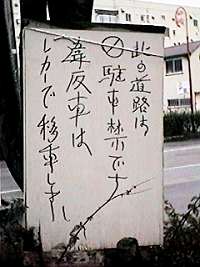 此の道路は
駐車禁です
違反車は
レカーで移車します